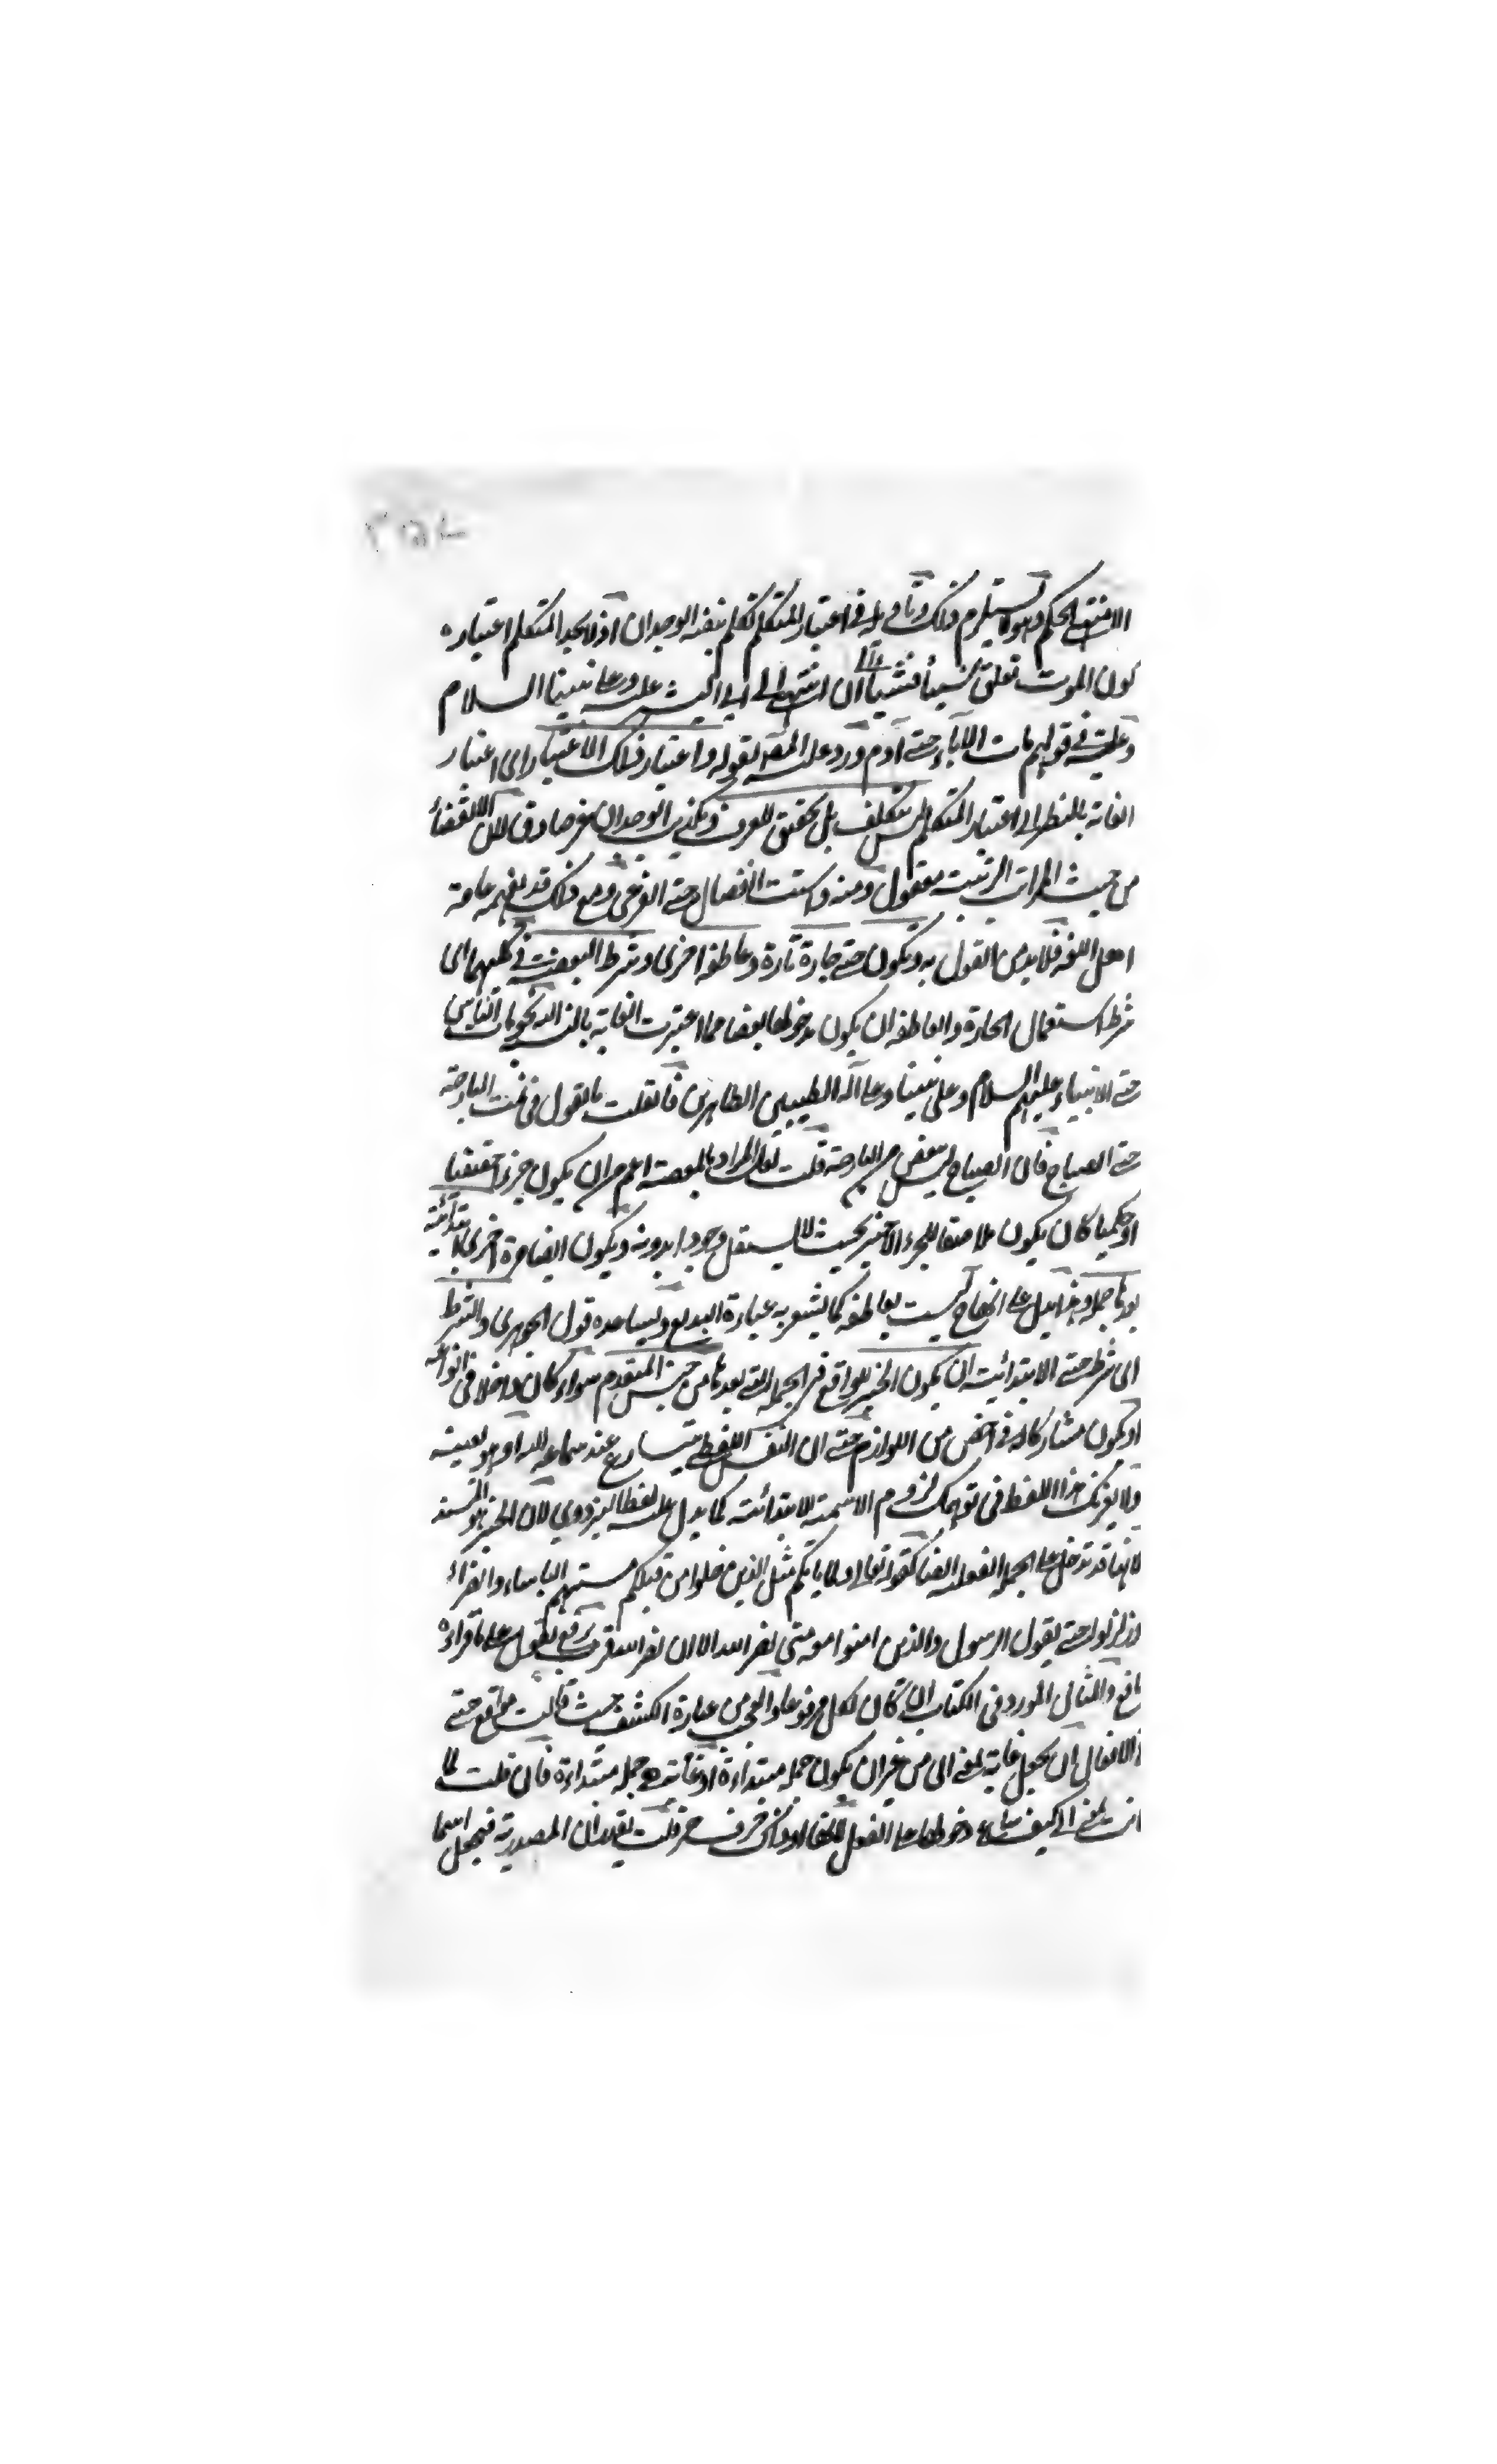 الا ينتفى الحكم وهو لا يستلزم ذلك وتأويله فى اعتبار المتكلم تكلم ينفيه الوجدان اذ لا يجد المتكلم اعتباره
كون الموت تعلق شيئا فشيئا الى ان انتهى الى ابى البشر عليه وعلى نبينا السلام
فى قولهم مات الآباء حتى آدم ورد عليه المص بقوله واعتبار ذلك الاعتبار اى اعتبار
الغاية بالنظر الى اعتبار المتكلم ليس بتكلف بل تحقيق للعرف وتكذيب الوجدان غير صادق لان الانقضاء
من حيث المراتب الرتبية معقول ومنه واستنت الفصال حتى القرعى ومع ذلك قد يفهمه عامة
اهل اللغة فلا بد من القول به وتكون حتى جارة تارة وعاطفة اخرى وشرط البعضية فى كليهما اى
شرط استعمال الجارة والعاطفة ان يكون مدخولها بعضا مما اعتبرت الغاية بالنسبة اليه نحو مات الناس
حتى الانبياء عليهم السلام وعلى نبينا وعلى آله الطيبين الطاهرين فان قلت ما تقول فى نمت البارحة
حتى الصباح فان الصباح ليس بعض من البارحة قلت لعل المراد بالبعضية اعم من ان يكون جزءا حقيقيا
او حكميا كان يكون ملاصقا للجزء الاخير بحيث لا يستقل وجودا بدونه ويكون ايضا مرة اخرى ابتدائية
بعدها جملة وهذا يدل على انها ح ليست بعاطفة كما يشعر به عبارة البديع ويساعده قول الجوهرى والشرط
اى شرط حتى الابتدائية ان يكون الخبر الواقع فى الجملة التى بعدها من جنس المتقدم سواء كان داخلا فى انواعه
او يكون مشاركا له فى اخص من اللوازم حتى ان النفس يتسارع عند سماعه اليه او هو بعينه
ولا يغرنك هذا اللفظ فى توهمك لزوم الاسمية للابتدائية كما يدل عليه لفظ البزدوى لان الخبر هو المسند
لانها قد تدخل على الجملة الفعلية ايضا كقوله تعالى ولما ياتكم مثل الذين خلوا من قبلكم مستهم الباساء والضراء
وزلزلوا حتى يقول الرسول والذين امنوا معه متى نصر الله الا ان نصر الله قريب برفع يقول على ما قراءه
نافع والمثال المورد فى الكتاب ان كان اكل مرفوعا والعجب من عبارة الكشف حيث قالت مواقع حتى
فى الافعال ان يجعل غاية بمعنى الى من غير ان يكون جملة مبتداءة او غاية هى جملة مبتداءة فان قلت لما
كانت بمعنى الى كيف ساغ دخولها على الفعل حرف جر قلت بتقدير ان المصدرية فيجعل اسما